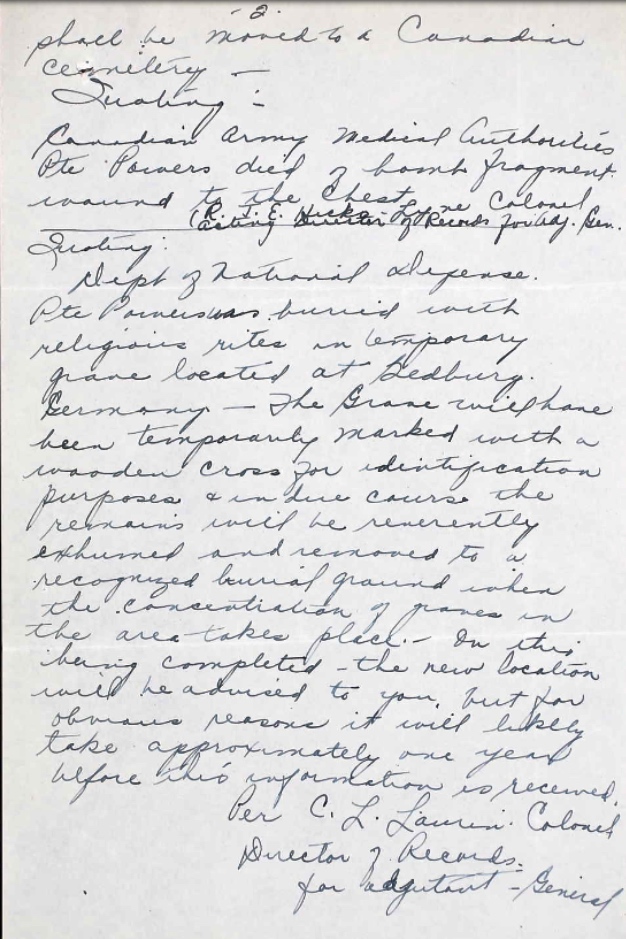 - 2.
shall be moved to a Canadian
cemetery —
Quoting :-
Canadian Army Medical Authorities
Pte Powers died of bomb fragment
wound to the Chest
(R. J. E. Hicks - Colonel
acting Director of Records for Adj. Gen.
Quoting:
Dept of National Defense.
Pte Powers was buried with
religious rites in temporary
grave located at Bedburg.
Germany — The Grave will have
been temporarily marked with a
wooden cross for identification
purposes & in due course the
remains will be reverently
exhumed and removed to a
recognized burial ground when
the concentration of graves in
the area takes place. - On this
being completed - the new location
will be advised to you, but for
obvious reasons it will likely
take approximately one year
before this information is received.
Per C. L. Laurin. Colonel
Director of Records.
for adjutant - General